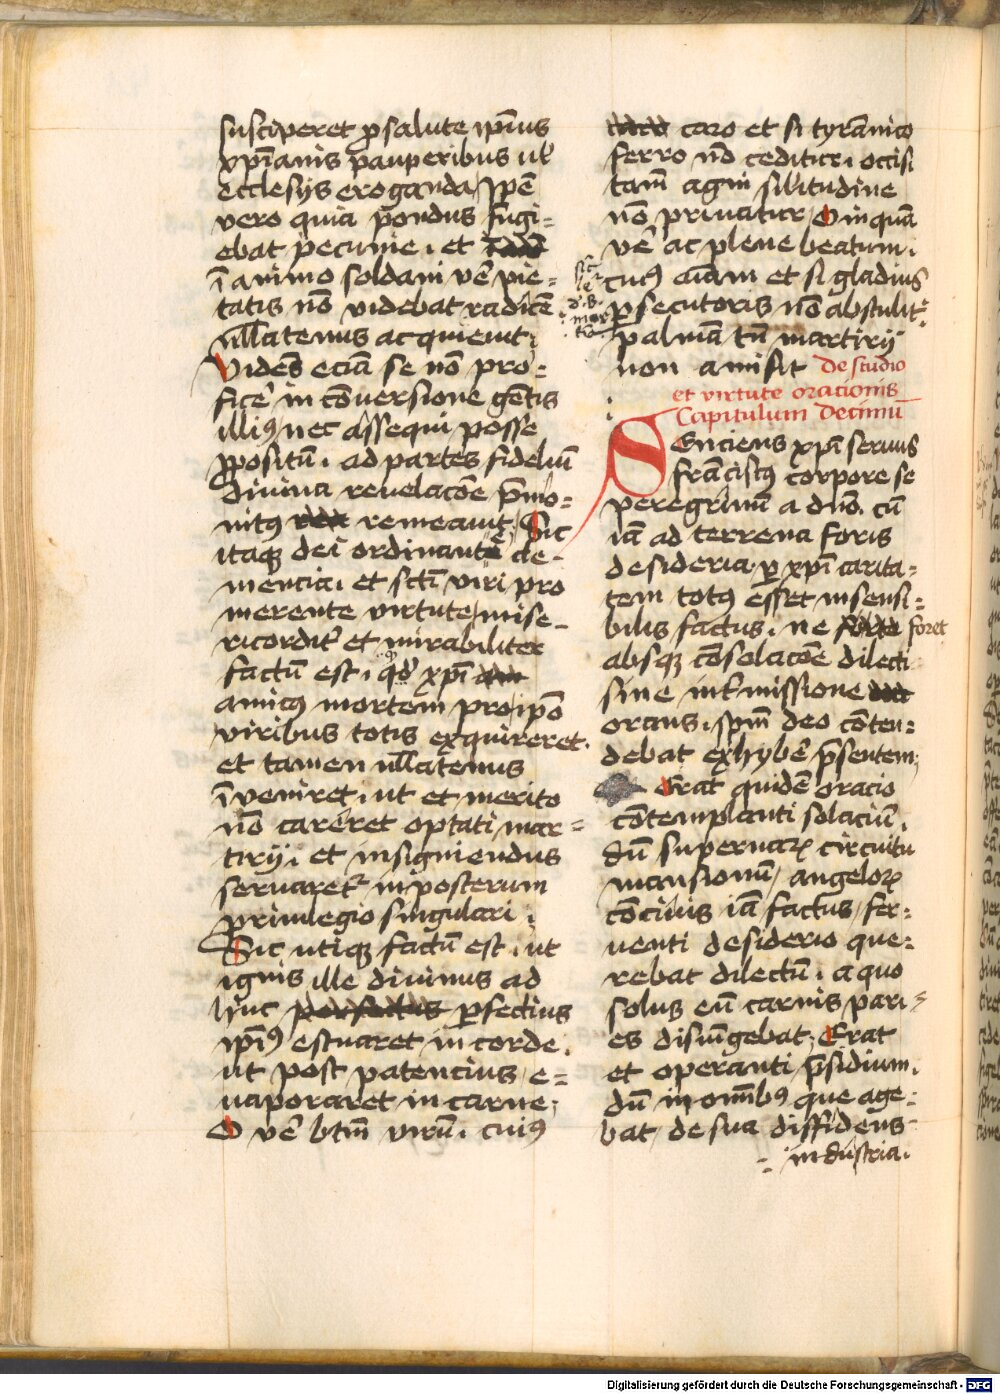 susciperet ꝑ salute ip̄ius
xp̄ianis pauperibus ut̉
ecclesijs eroganda / Ip̄e
vero quia pondus fugi=
ebat pecunie . et
ī animo soldani ve̅ pie=
tatis nō videbat radicē
ull̄atenus acquieuit .
Videns eciā se nō pro=
ficer̉ in cōuersione gētis
illiꝰ nec assequi posse
ꝓpositū . ad partes fideliū
diuina reuelacōe p̄mo=
nitꝰ remeauit . Sic
itaqꝫ dei ordinante cle-
mencia . et scti̅ viri pro
merente virtute / mise-
ricordit̉ et mirabiliter
factū est . qd̓ xp̄i
amicꝰ mortem pro ip̄o
viribus totis exquireret .
et tamen ull̄atenus
īveniret . ut et merito
nō careret optati mar=
tirij . et insigniendus
seruaret᷑ in posterum
priuilegio singulari .
Sic utiqꝫ factū est . ut
ignis ille diuinus ad
huc perfectius ꝑfectius
ip̄iꝰ estuaret in corde .
ut post patencius e=
uaporaret in carne .
O ve̅ btm̄ virū . cuiꝰ
caro et si tyrānico
ferro nō ceditur . occisi
tam̄ agni silitudine
nō priuatur O inquā
ve̅ ac plene beatum .
cuiꝰ aīam et si gladius
ꝑsecutoris nō abstulit .
palmā tn̄ martirij
non amisit De studio
et virtute oracionis
Capitulum Decimū
Senciens xp̄i seruus
frāciscꝰ corpore se
peregrinū a dn̄o . cū
iā ad terrena foris
desideria ꝑ xp̄i carita=
tem totꝰ esset insensi=
bilis factus . ne forte foret
absqꝫ cōsolacōe dilecti
sine int̉missione
orans . spm̄ deo cōten=
debat exhyber̉ p̄sentem .
Erat quidē oracio
cōtemplanti solaciū .
dū supernaꝝ circuitu
mansionū / angeloꝝ
cōciuis iā factus / fer=
uenti desiderio que=
rebat dilectū . a quo
solus eū carnis pari=
es disiūgebat . Erat
et operanti p̄sidium .
dū in om̄ibꝰ que age=
bat / de sua diffidens
industria .